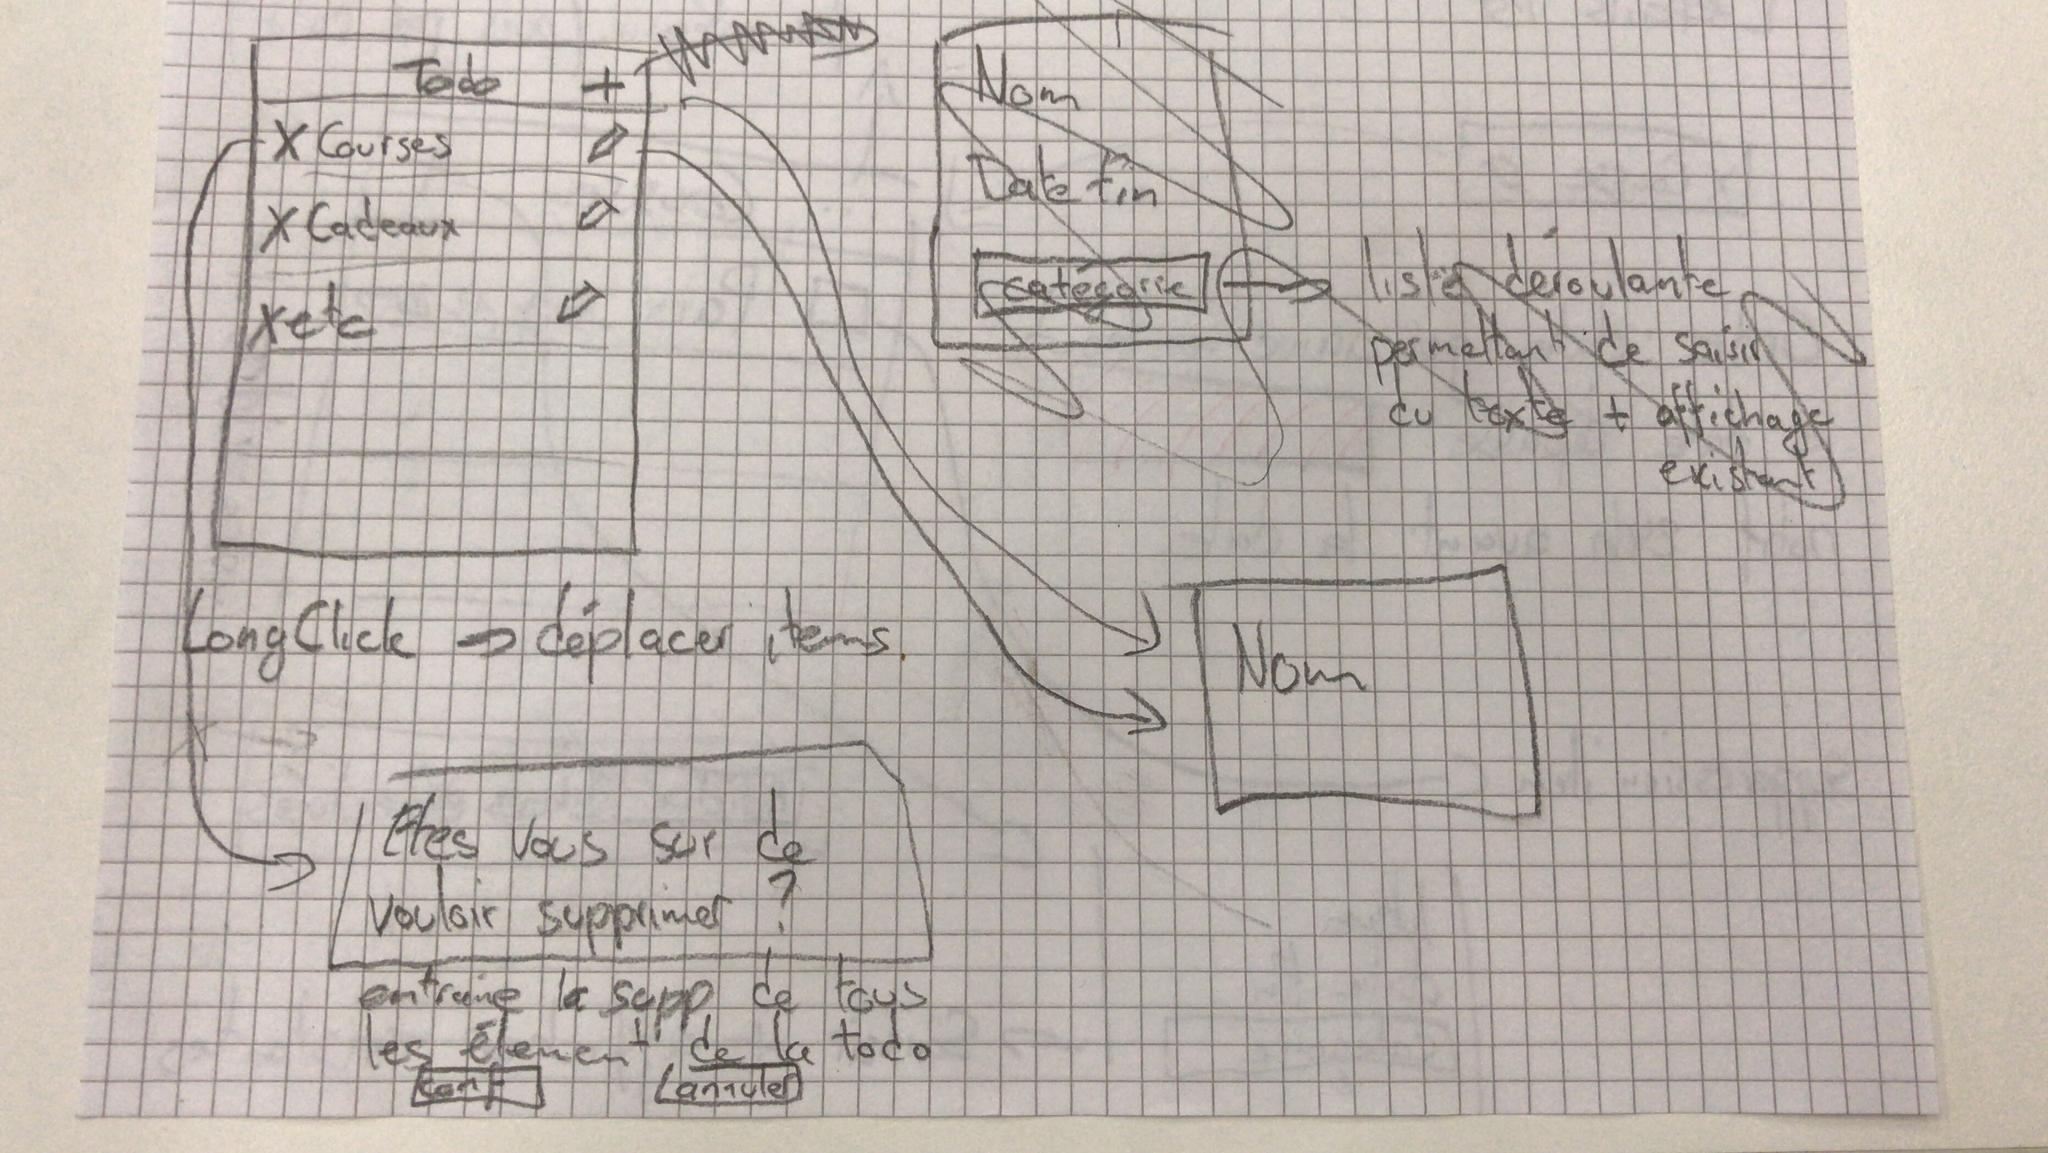 Todo +
X Courses
X Cadeaux
X etc
Nom
Date fin
categorie
liste déroulante
permettant de saisir
du texte + affichage
existant
LongClick → déplacer items.
Nom
Etes vous sur de
vouloir supprimer ?
entraine la supp de tous
les élément de la todo
conf
annuler